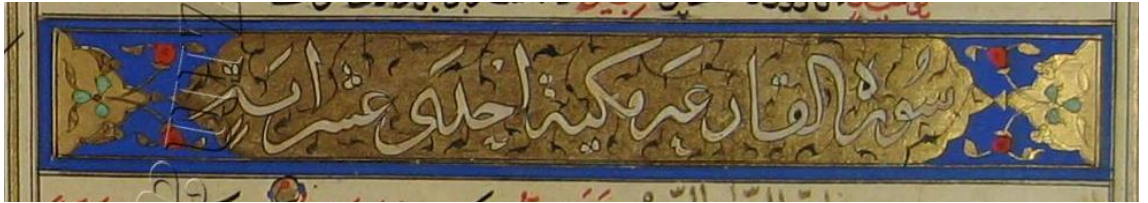 سورة القارعة مكية احدى عشر اية